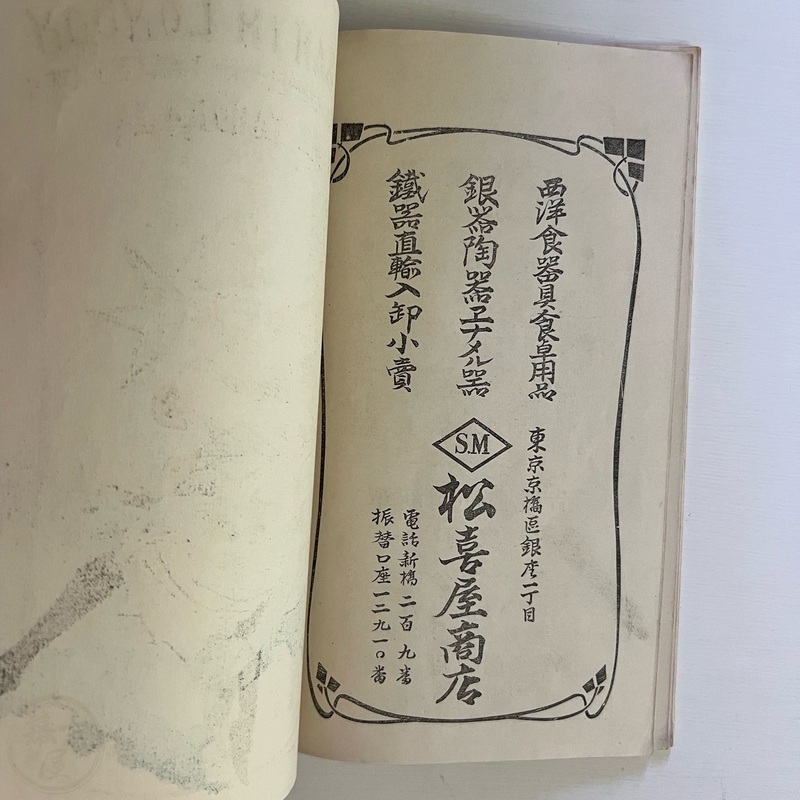 西洋食器具食卓用品
銀器陶器エナメル器
鐵器直輸入卸小賣
東京京橋區銀座一丁目
S.M
松喜屋商店
電話新橋二百九番
振替口座一二九一〇番